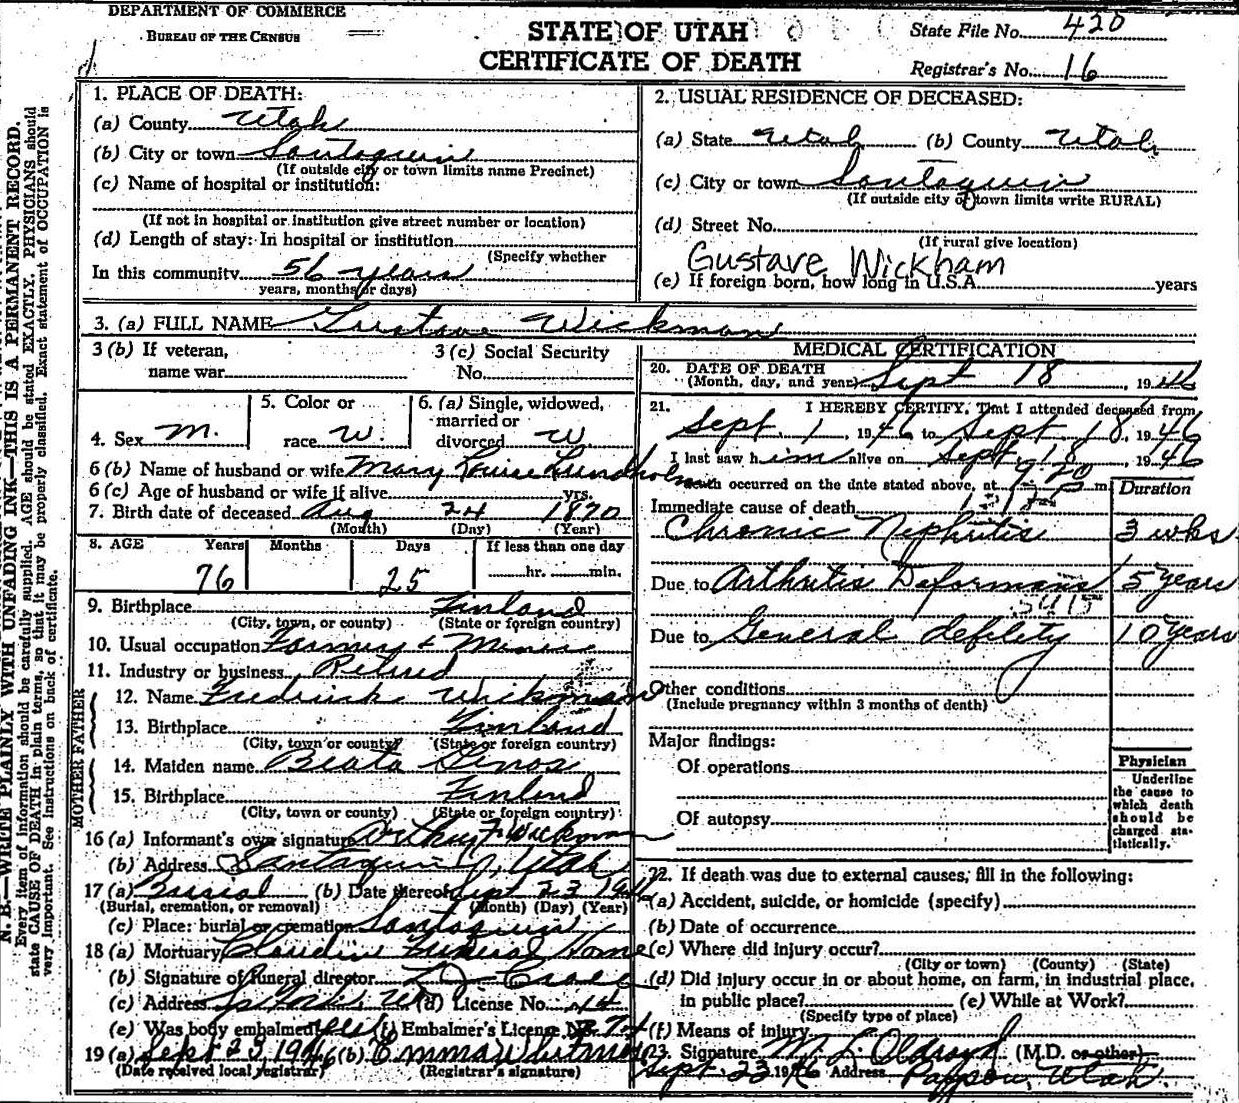 DEPARTMENT OF COMMERCE
BUREAU OF THE CENSUS
STATE OF UTAH
CERTIFICATE OF DEATH
State File No. 420
Registrar's No. 16
N. B.—WRITE PLAINLY WITH UNFADING INK—THIS IS A PERMANENT RECORD.
Every item of information should be carefully supplied. AGE should be stated EXACTLY. PHYSICIANS should
state CAUSE OF DEATH in plain terms, so that it may be properly classified. Exact statement of OCCUPATION is
very important. See instructions on back of certificate.
1. PLACE OF DEATH:
(a) County Utah
(b) City or town Santaquin
(If outside city or town limits name Precinct)
(c) Name of hospital or institution:
(If not in hospital or institution give street number or location)
(d) Length of stay: In hospital or institution
(Specify whether
In this community 56 years
years, months or days)
2. USUAL RESIDENCE OF DECEASED:
(a) State Utah (b) County Utah
(c) City or town Santaquin
(If outside city or town limits write RURAL)
(d) Street No.
(If rural give location)
Gustave Wickham
(e) If foreign born, how long in U.S.A. years
3. (a) FULL NAME Gustave Wickman
3 (b) If veteran, name war
3 (c) Social Security No.
4. Sex M.
5. Color or race W.
6. (a) Single, widowed, married or divorced W
6 (b) Name of husband or wife Mary Louise Lundholm
6 (c) Age of husband or wife if alive yrs.
7. Birth date of deceased Aug 24 1870
(Month) (Day) (Year)
8. AGE Years Months Days If less than one day
76 25 hr. min.
9. Birthplace Finland
(City, town, or county) (State or foreign country)
10. Usual occupation Farmer & Miner
11. Industry or business Retired
FATHER
12. Name Fredrick Wickman
13. Birthplace Finland
(City, town or county) (State or foreign country)
MOTHER
14. Maiden name Beata
15. Birthplace Finland
(City, town or county) (State or foreign country)
16 (a) Informant's own signature Arthur F. Wickman
(b) Address Santaquin, Utah
17 (a) Burial (b) Date thereof Sept 23 1946
(Burial, cremation, or removal) (Month) (Day) (Year)
(c) Place: burial or cremation Santaquin
18 (a) Mortuary Claudin Funeral Home
(b) Signature of funeral director
(c) Address (d) License No. 14
(e) Was body embalmed (f) Embalmer's License No.
19 (a) Sept 23 1946 (b) Emma Whitman
(Date received local registrar) (Registrar's signature)
MEDICAL CERTIFICATION
20. DATE OF DEATH
(Month, day, and year) Sept 18, 1946
21. I HEREBY CERTIFY, That I attended deceased from
Sept. 1 1946 to Sept 18, 1946
I last saw him alive on Sept 18, 1946
death occurred on the date stated above, at 9 20 P m.
Duration
Immediate cause of death
Chronic Nephritis 3 wks
Due to Arthritis Deformans 5 years
Due to General debility 10 years
Other conditions
(Include pregnancy within 3 months of death)
Major findings:
Of operations
Of autopsy
Physician
Underline
the cause to
which death
should be
charged sta-
tistically.
22. If death was due to external causes, fill in the following:
(a) Accident, suicide, or homicide (specify)
(b) Date of occurrence
(c) Where did injury occur?
(City or town) (County) (State)
(d) Did injury occur in or about home, on farm, in industrial place,
in public place? (e) While at Work?
(Specify type of place)
(f) Means of injury
23. Signature M L Oldroyd (M.D. or other)
Sept. 23 1946 Address Payson, Utah.